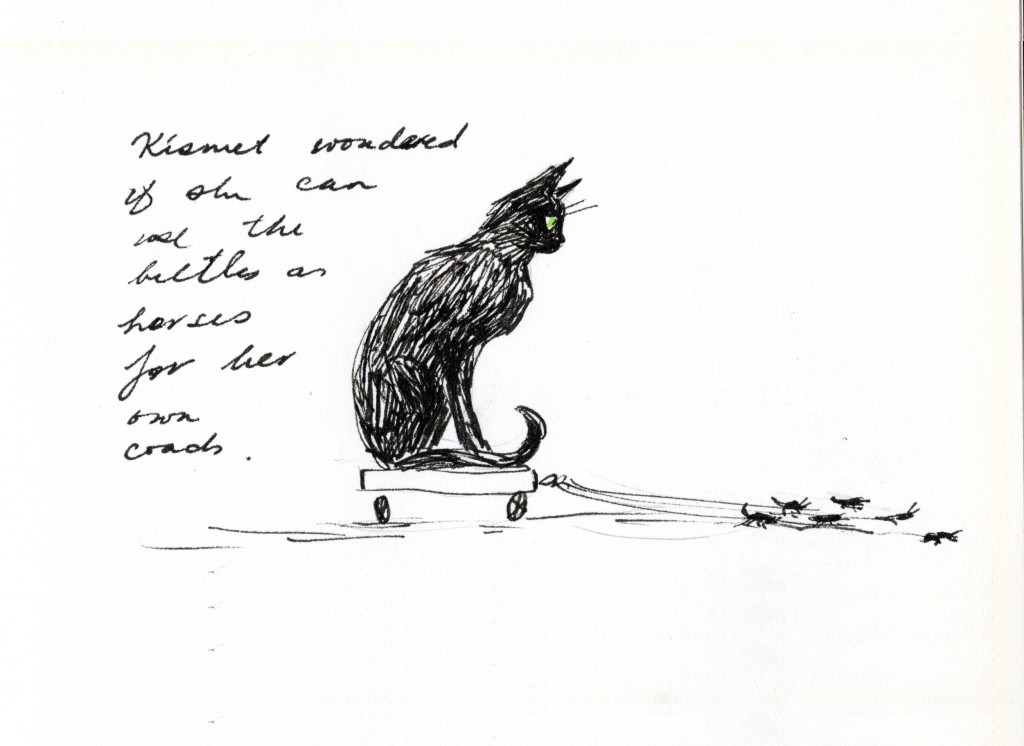 Kismet wondered
if she can
use the
beetles as
horses
for her
own
coach.